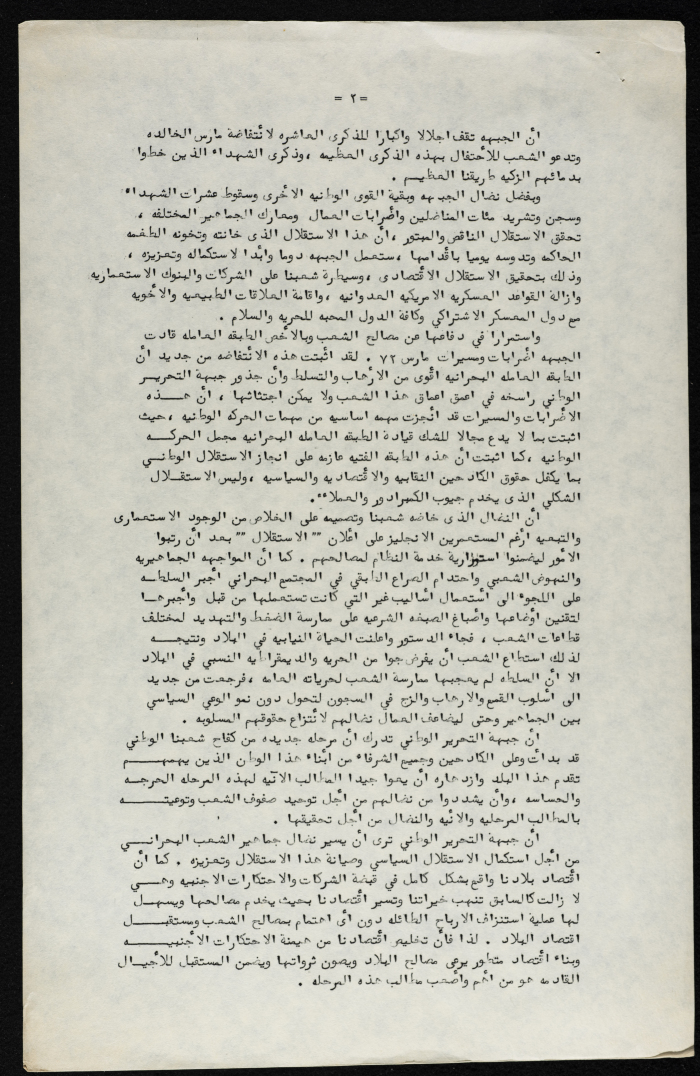 = ٢ =
أن الجبهه تقف اجلالا واكبارا للذكرى العاشره لانتفاضة مارس الخالده
وتدعو الشعب للأحتفال بهذه الذكرى العظيمه ، وذكرى الشهداء الذين خطوا
بدمائهم الزكيه طريقنا العظيم .
وبفضل نضال الجبهه وبقية القوى الوطنيه الأخرى وسقوط عشرات الشهداء
وسجن وتشريد مئات المناضلين واضرابات العمال ومعارك الجماهير المختلفه ،
تحقق الاستقلال الناقص والمبتور ، أن هذا الاستقلال الذى خانته وتخونه الطغمه
الحاكمه وتدوسه يوميا بأقدامها ، ستعمل الجبهه دوما وأبدا لاستكماله وتعزيزه ،
وذلك بتحقيق الاستقلال الأقتصادى ، وسيطرة شعبنا على الشركات والبنوك الاستعماريه
وازالة القواعد العسكريه الامريكيه العدوانيه ، واقامة العلاقات الطبيعيه والأخويه
مع دول المعسكر الاشتراكي وكافة الدول المحبه للحريه والسلام .
واستمرارا في دفاعها عن مصالح الشعب وبالأخص الطبقه العامله قادت
الجبهه أضرابات ومسيرات مارس ٧٢ . لقد اثبتت هذه الأنتفاضه من جديد أن
الطبقه العامله البحرانيه أقوى من الأرهاب والتسلط وأن جذور جبهة التحرير
الوطني راسخه في اعمق اعماق هذا الشعب ولا يمكن اجتثاثها ، أن هـــذه
الأضرابات والمسيرات قد انجزت مهمه اساسيه من مهمات الحركه الوطنيه ، حيث
اثبتت بما لا يدع مجالا للشك قيادة الطبقه العامله البحرانيه مجمل الحركـــه
الوطنيه ، كما اثبتت أن هذه الطبقه الفتيه عازمه على انجاز الاستقلال الوطنــي
بما يكفل حقوق الكادحين النقابيه والاقتصاديه والسياسيه ، وليس الاستقــلال
الشكلي الذى يخدم جيوب الكمبرادور والعملاء .
أن النضال الذى خاضه شعبنا وتصميمه على الخلاص من الوجود الاستعمارى
والتبعيه ارغم المستعمرين الانجليز على اعلان "" الاستقلال "" بعد أن رتبوا
الأمور ليضمنوا استمرارية خدمة النظام لمصالحهم . كما أن المواجهه الجماهيريه
والنهوض الشعبي واحتدام الصراع الطبقي في المجتمع البحراني أجبر السلطــه
على اللجوء الى أستعمال أساليب غير التي كانت تستعملها من قبل وأجبرهــا
لتقنين أوضاعها وأضباغ الصبغه الشرعيه على ممارسة الضغط والتهديد لمختلف
قطاعات الشعب ، فجاء الدستور واعلنت الحياة النيابيه في البلاد ونتيجــه
لذلك استطاع الشعب أن يفرض جوا من الحريه والديمقراطيه النسبي في البلاد
الا أن السلطه لم يعجبها ممارسة الشعب لحرياته العامه ، فرجعت من جديد
الى أسلوب القمع والارهاب والزج في السجون لتحول دون نمو الوعي السياسي
بين الجماهير وحتى ليضاعف العمال نضالهم لأنتزاع حقوقهم المسلوبه .
أن جبهة التحرير الوطني تدرك أن مرحله جديده من كفاح شعبنا الوطني
قد بدأت وعلى الكادحين وجميع الشرفاء من أبناء هذا الوطن الذين يهمهـــم
تقدم هذا البلد وازدهاره أن يعوا جيدا المطالب الآنيه لهذه المرحله الحرجه
والحساسه ، وأن يشددوا من نضالهم من أجل توحيد صفوف الشعب وتوعيتـــه
بالمطالب المرحليه والآنيه والنضال من أجل تحقيقها .
أن جبهة التحرير الوطني ترى أن يسير نضال جماهير الشعب البحرانـــي
من أجل استكمال الاستقلال السياسي وصيانة هذا الاستقلال وتعزيزه . كما أن
اقتصاد بلادنا واقع بشكل كامل في قبضة الشركات والاحتكارات الاجنبيه وهــي
لا زالت كالسابق تنهب خيراتنا وتسير اقتصادنا بحيث يخدم مصالحها ويسهــل
لها عملية استنزاف الارباح الطائله دون أى اهتمام بمصالح الشعب ومستقبــل
اقتصاد البلاد . لذا فأن تخليص اقتصادنا من هيمنة الاحتكارات الأجنبيـــه
وبناء اقتصاد متطور يرعى مصالح البلاد ويصون ثرواتها ويضمن المستقبل للأجيــال
القادمه هو من أهم وأصعب مطالب هذه المرحله .